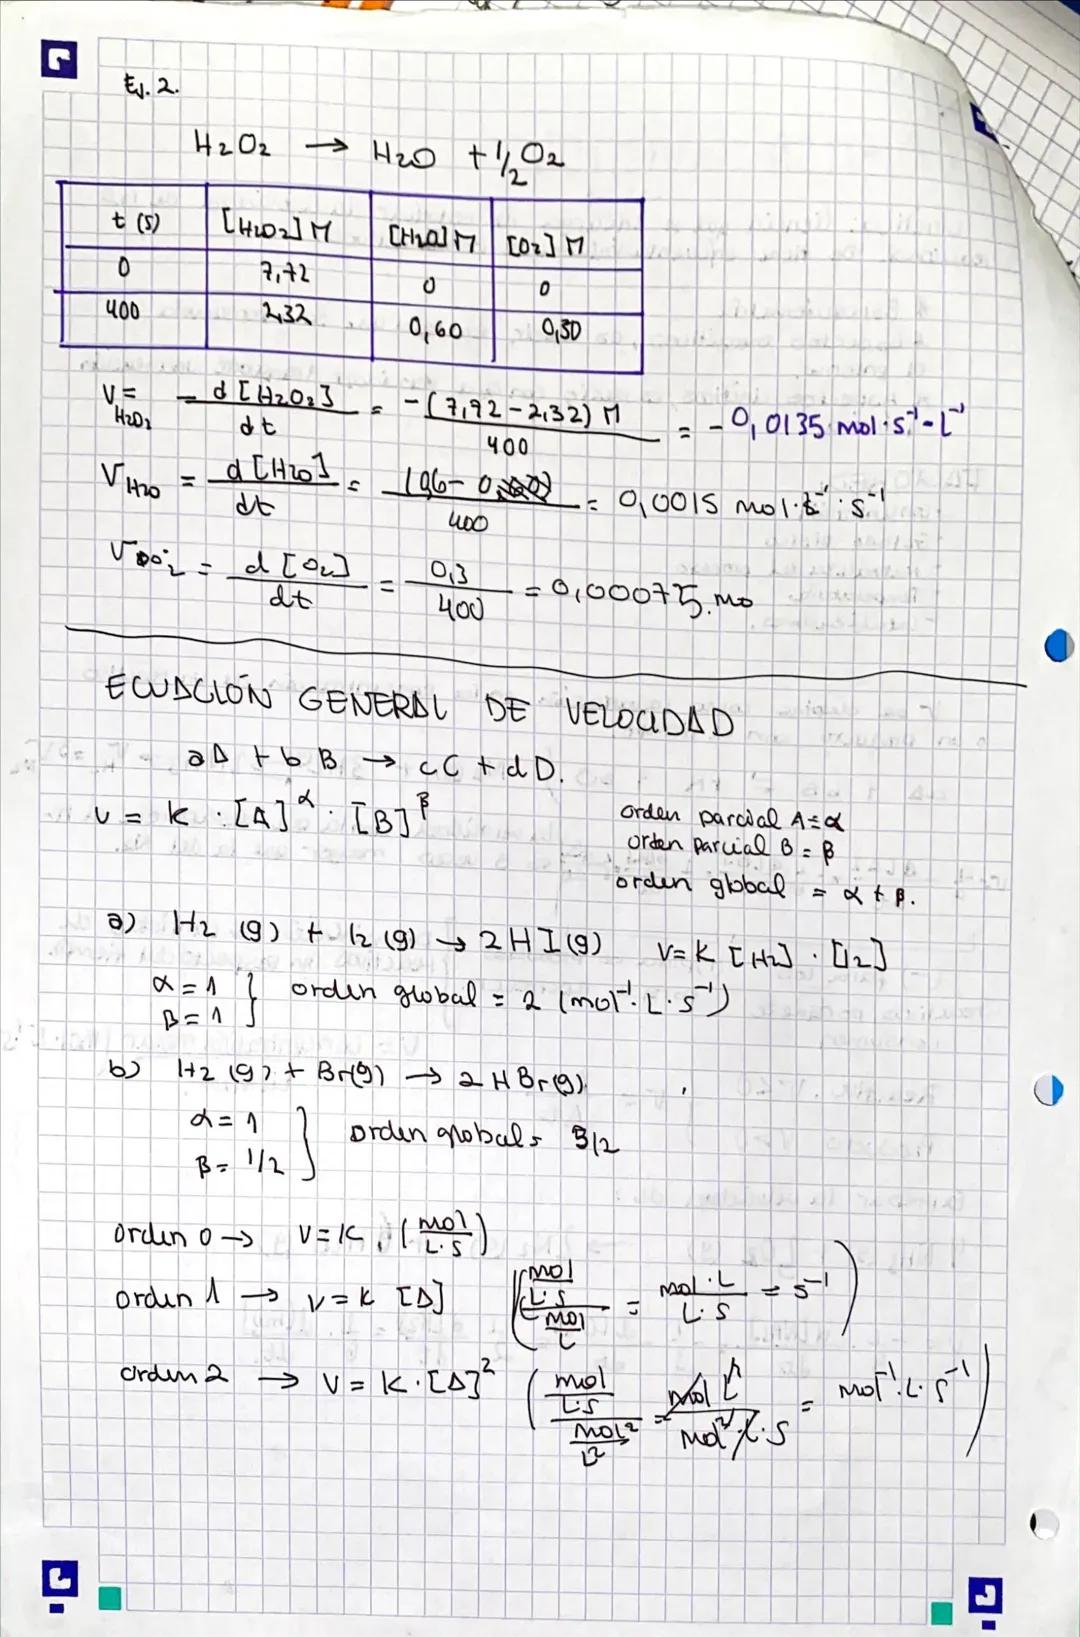 Ej. 2.
H2O2 → H2O + 1/2 O2
t (s) [H2O2] M [H2O] M [O2] M
0 7,72 0 0
400 2,32 0,60 0,30
V H2O2 = - d [H2O2] / dt = -(7,92 - 2,32) M / 400 = - 0,0135 mol·s⁻¹·L⁻¹
V H2O = d [H2O] / dt = (0,6 - 0) / 400 = 0,0015 mol·L⁻¹·s⁻¹
V O2 = d [O2] / dt = 0,3 / 400 = 0,00075. mo
ECUACIÓN GENERAL DE VELOCIDAD
aA + b B → cC + d D.
v = k · [A]^α · [B]^β
orden parcial A = α
orden parcial B = β
orden global = α + β.
a) H2 (g) + I2 (g) → 2 H I (g) V = K [H2] · [I2]
α = 1
β = 1
} orden global = 2 (mol⁻¹· L · s⁻¹)
b) H2 (g) + Br(g) → 2 H Br (g)
α = 1
β = 1/2
} orden global = 3/2
orden 0 → V = K, (mol / L·s)
orden 1 → v = k [A] ((mol / L·s) / (mol / L) = mol·L / L·s = s⁻¹)
orden 2 → V = K·[A]² ((mol / L·s) / (mol² / L²) = mol L² / mol² · L · s = mol⁻¹·L·s⁻¹)